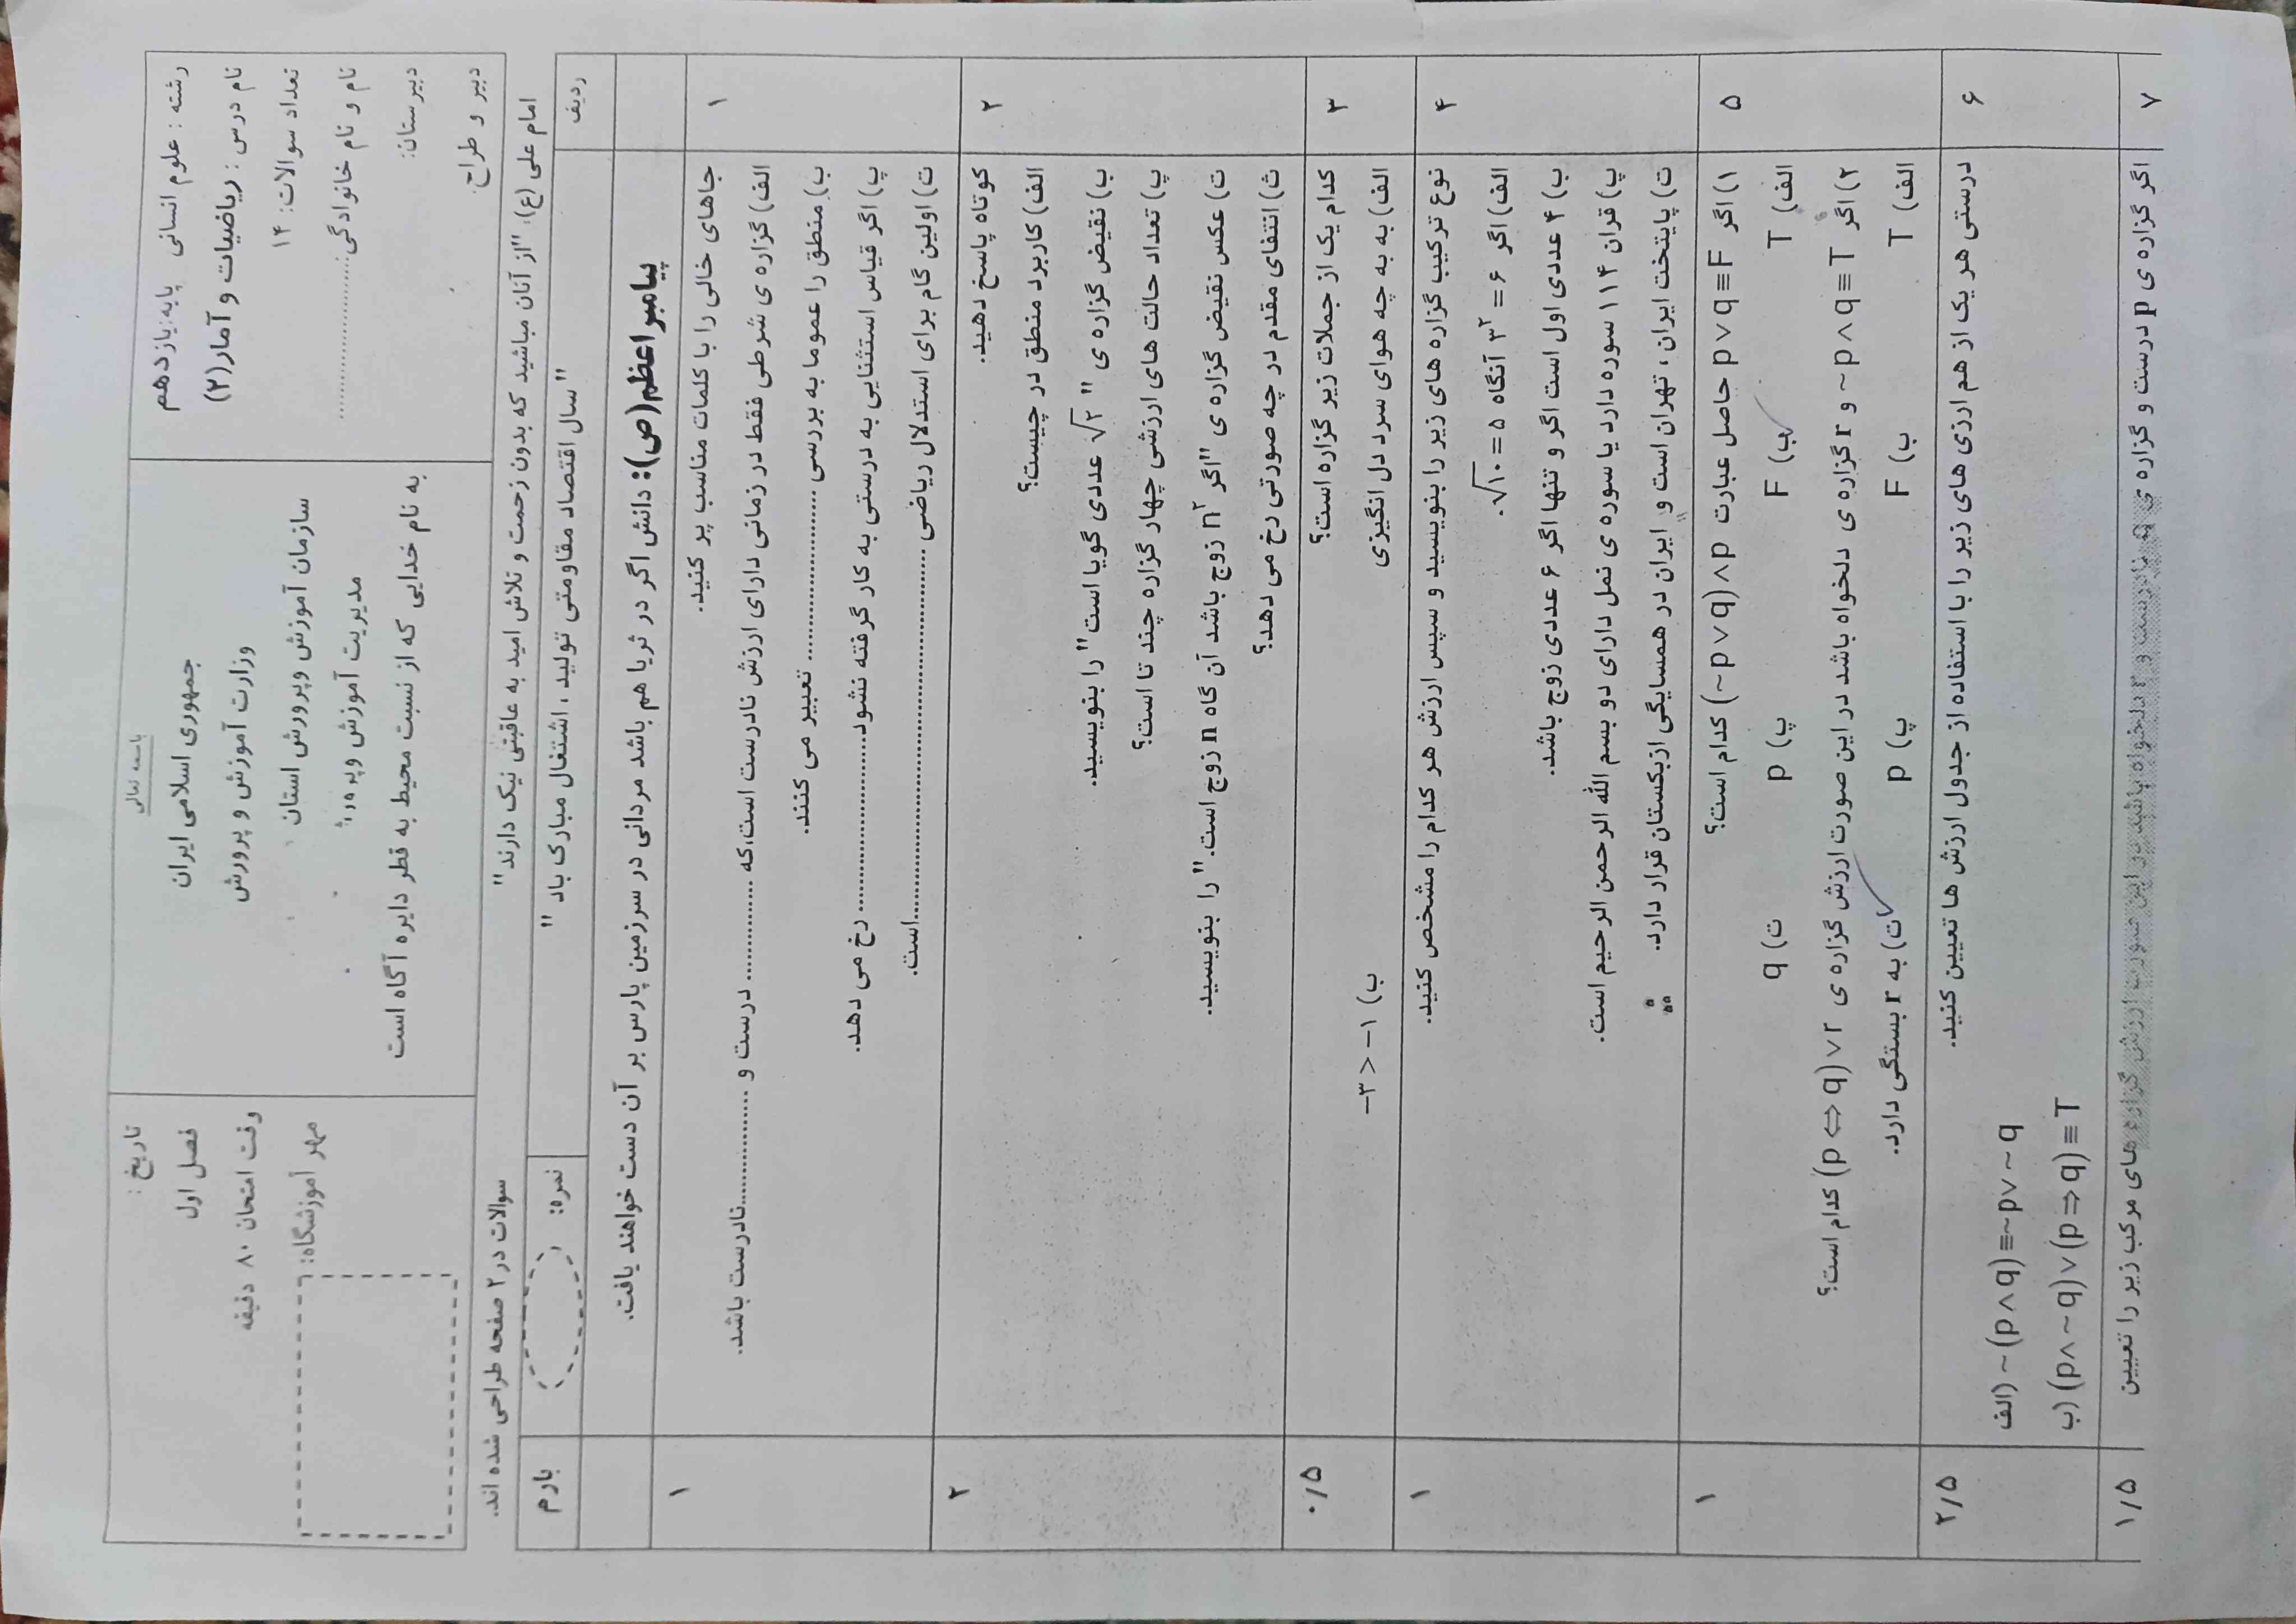 باسمه تعالی
رشته : علوم انسانی پایه: یازدهم
نام درس : ریاضیات و آمار(۲)
تعداد سوالات: ۱۴
نام و نام خانوادگی....................
دبیرستان:
دبیر و طراح:
جمهوری اسلامی ایران
وزارت آموزش و پرورش
سازمان آموزش وپرورش استان
مدیریت آموزش وپرورش
به نام خدایی که از نسبت محیط به قطر دایره آگاه است
تاریخ :
فصل اول
وقت امتحان ۸۰ دقیقه
مهر آموزشگاه:
امام علی (ع): "از آنان مباشید که بدون زحمت و تلاش امید به عاقبتی نیک دارند" سوالات در ۲ صفحه طراحی شده اند.
ردیف "سال اقتصاد مقاومتی تولید ، اشتغال مبارک باد " نمره: بارم
پیامبر اعظم(ص): دانش اگر در ثریا هم باشد مردانی در سرزمین پارس بر آن دست خواهند یافت.
۱ جاهای خالی را با کلمات مناسب پر کنید. ۱
الف) گزاره ی شرطی فقط در زمانی دارای ارزش نادرست است،که ............ درست و ............نادرست باشد.
ب) منطق را عموما به بررسی .................. تعبیر می کنند.
پ) اگر قیاس استثنایی به درستی به کار گرفته نشود.................... رخ می دهد.
ت) اولین گام برای استدلال ریاضی ........................................است.
۲ کوتاه پاسخ دهید. ۲
الف) کاربرد منطق در چیست؟
ب) نقیض گزاره ی " √۲ عددی گویا است" را بنویسید.
پ) تعداد حالت های ارزشی چهار گزاره چند تا است؟
ت) عکس نقیض گزاره ی "اگر n² زوج باشد آن گاه n زوج است." را بنویسید.
ث) انتفای مقدم در چه صورتی رخ می دهد؟
۳ کدام یک از جملات زیر گزاره است؟ ۰/۵
الف) به به چه هوای سرد دل انگیزی ب) ۱− < ۳−
۴ نوع ترکیب گزاره های زیر را بنویسید و سپس ارزش هر کدام را مشخص کنید. ۱
الف) اگر ۳² = ۶ آنگاه √۱۰ = ۵.
ب) ۴ عددی اول است اگر و تنها اگر ۶ عددی زوج باشد.
پ) قران ۱۱۴ سوره دارد یا سوره ی نمل دارای دو بسم الله الرحمن الرحیم است.
ت) پایتخت ایران ، تهران است و ایران در همسایگی ازبکستان قرار دارد.
۵ ۱) اگر p ∨ q ≡ F حاصل عبارت (~p ∨ q) ∧ p کدام است؟ ۱
الف) T ب) F پ) p ت) q
۲) اگر ~p ∧ q ≡ T و r گزاره ی دلخواه باشد در این صورت ارزش گزاره ی (p ⇔ q) ∨ r کدام است؟
الف) T ب) F پ) p ت) به r بستگی دارد.
۶ درستی هر یک از هم ارزی های زیر را با استفاده از جدول ارزش ها تعیین کنید. ۲/۵
الف) ~(p ∧ q) ≡ ~p ∨ ~q
ب) (p ∧ ~q) ∨ (p ⇒ q) ≡ T
۷ اگر گزاره ی p درست و گزاره ی q نادرست و r دلخواه باشد در این صورت ارزش گزاره های مرکب زیر را تعیین ۱/۵